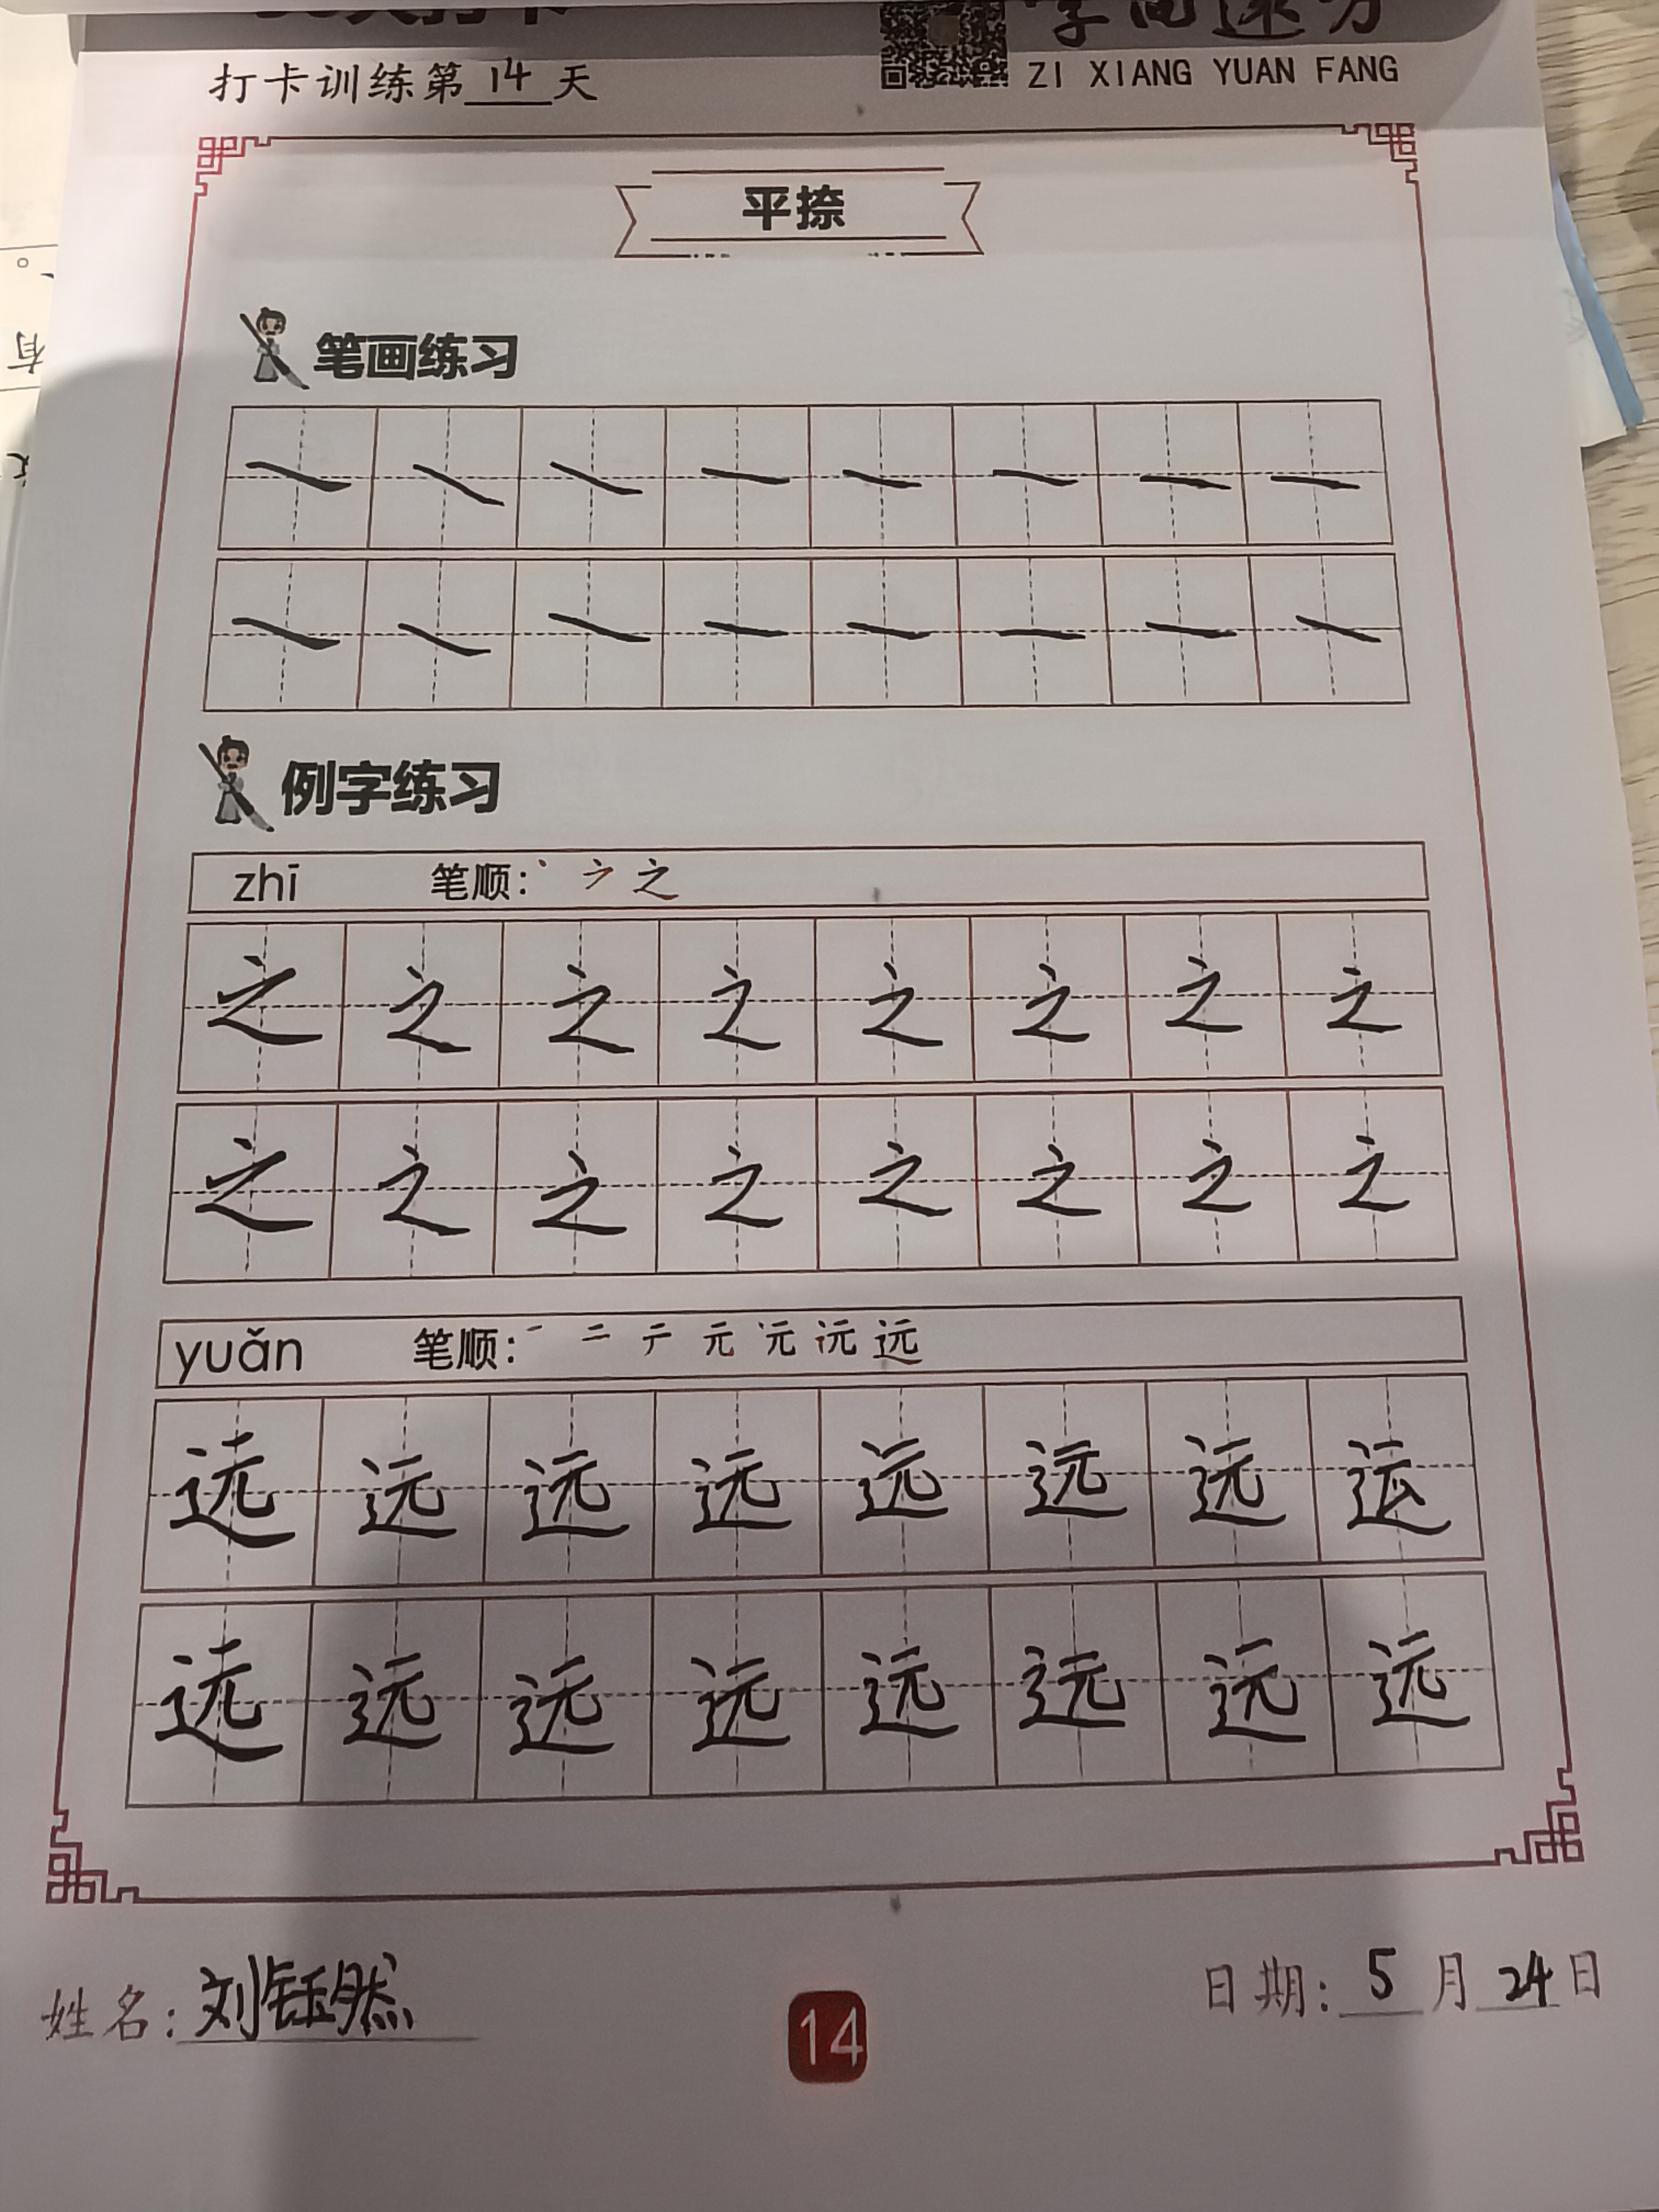 ZI XIANG YUAN FANG
打卡训练第14天
平捺
笔画练习
例字练习
zhī 笔顺: 之
之 之 之 之 之 之 之 之
之 之 之 之 之 之 之 之
yuǎn 笔顺: 一 二 テ 元 远
远 远 远 远 远 远 远 远
远 远 远 远 远 远 远 远
姓名: 刘钰然
14
日期: 5月24日
有